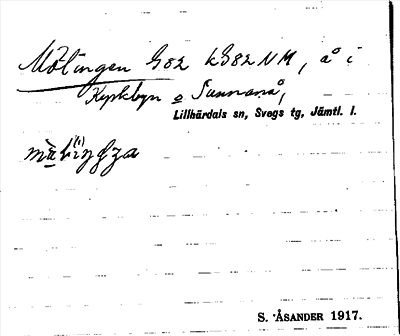 Mötingen G82 kG82NM, å i
Kyrkbyn o Sunnanå,
Lillhärdals sn, Svegs tg, Jämtl. l.
S. ÅSANDER 1917.